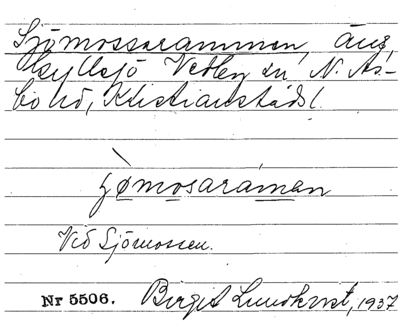 Sjömossarammen, äng,
Skyllsjö Vedby sn N. Ås-
bo hd, Kristianstads l.
ʃømosaraman
Vid Sjömossen.
Nr 5506. Birgit Lundkvist, 1937